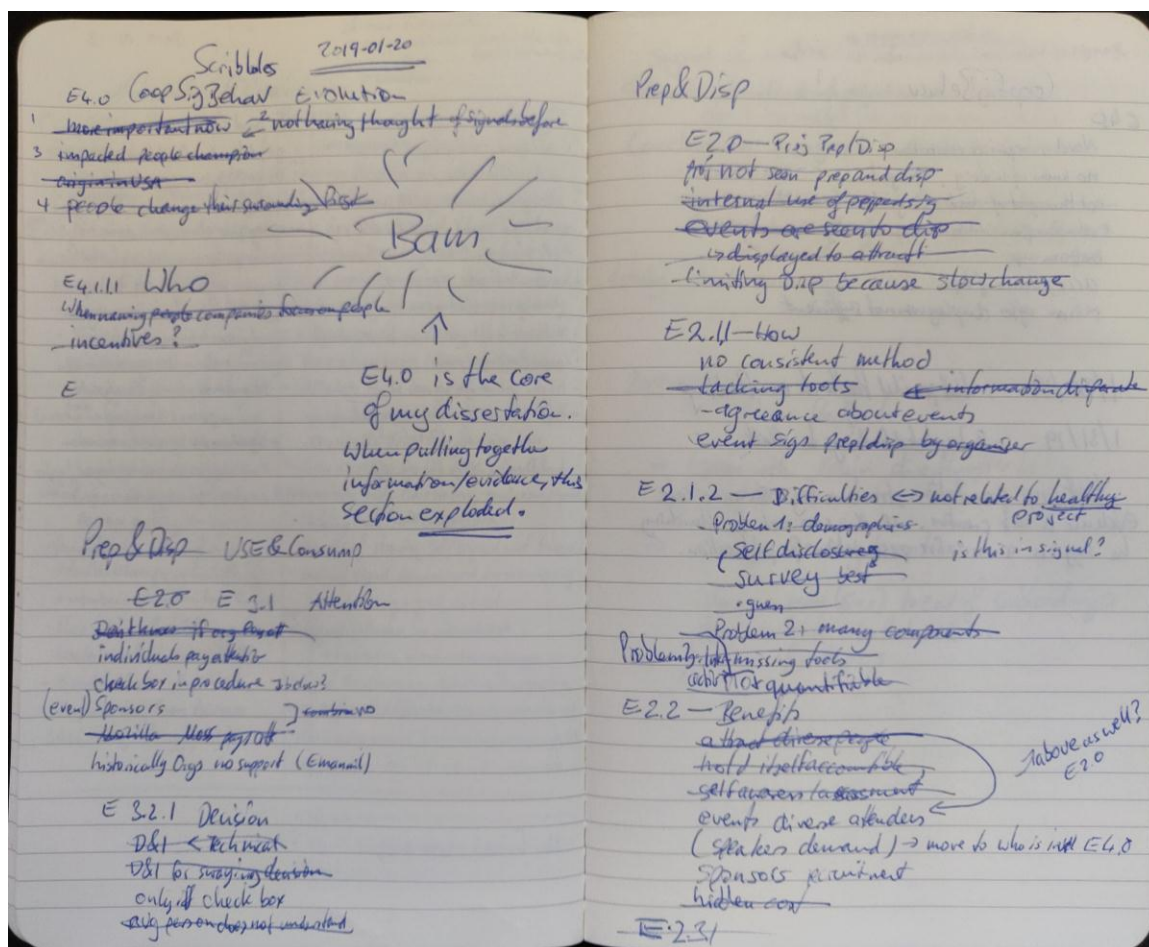 Scribbles 2019-01-20
E4.0 CoopSigBehav Evolution
1 more important now 2 not having thought of signals before
3 impacted people champion
origin in USA
4 people change their surounding
Bam
E4.1.1.1 Who
When naming people companies focus on people
incentives?
E
E4.0 is the core
of my dissertation.
When pulling together
information/evidence, this
section exploded.
Prep & Disp USE & Consump
E2.0 E 3.1 Attention
Don't know if org
individuals pay attention
check box in procedure
(event) Sponsors
combine
Mozilla Moss
historically Orgs no support (Emannil)
E 3.2.1 Decision
D&I < Technical
D&I for swaying decision
only if check box
avg person does not understand
Prep & Disp
E2.0 — Proj Prep/Disp
not seen prep and disp
internal use of
events are seen to disp
displayed to attract
limiting Disp because slow change
E2.1.1 — How
no consistent method
- Lacking tools information disparate
- agreeance about events
event sigs prep/disp by organiser
E2.1.2 — Difficulties ↔ not related to healthy
project
- Problem 1: demographics
self disclosures is this in signal?
survey best
guess
Problem 2: many components
Problem 3: missing tools
quantifiable
E2.2 — Benefits
attract diverse people
hold itself accountible
self awarens/assessment
events diverse attenders
above as well?
E2.0
(speakers demand) → move to who is in E4.0
Sponsors recruitment
hidden cost
E.2.3.1